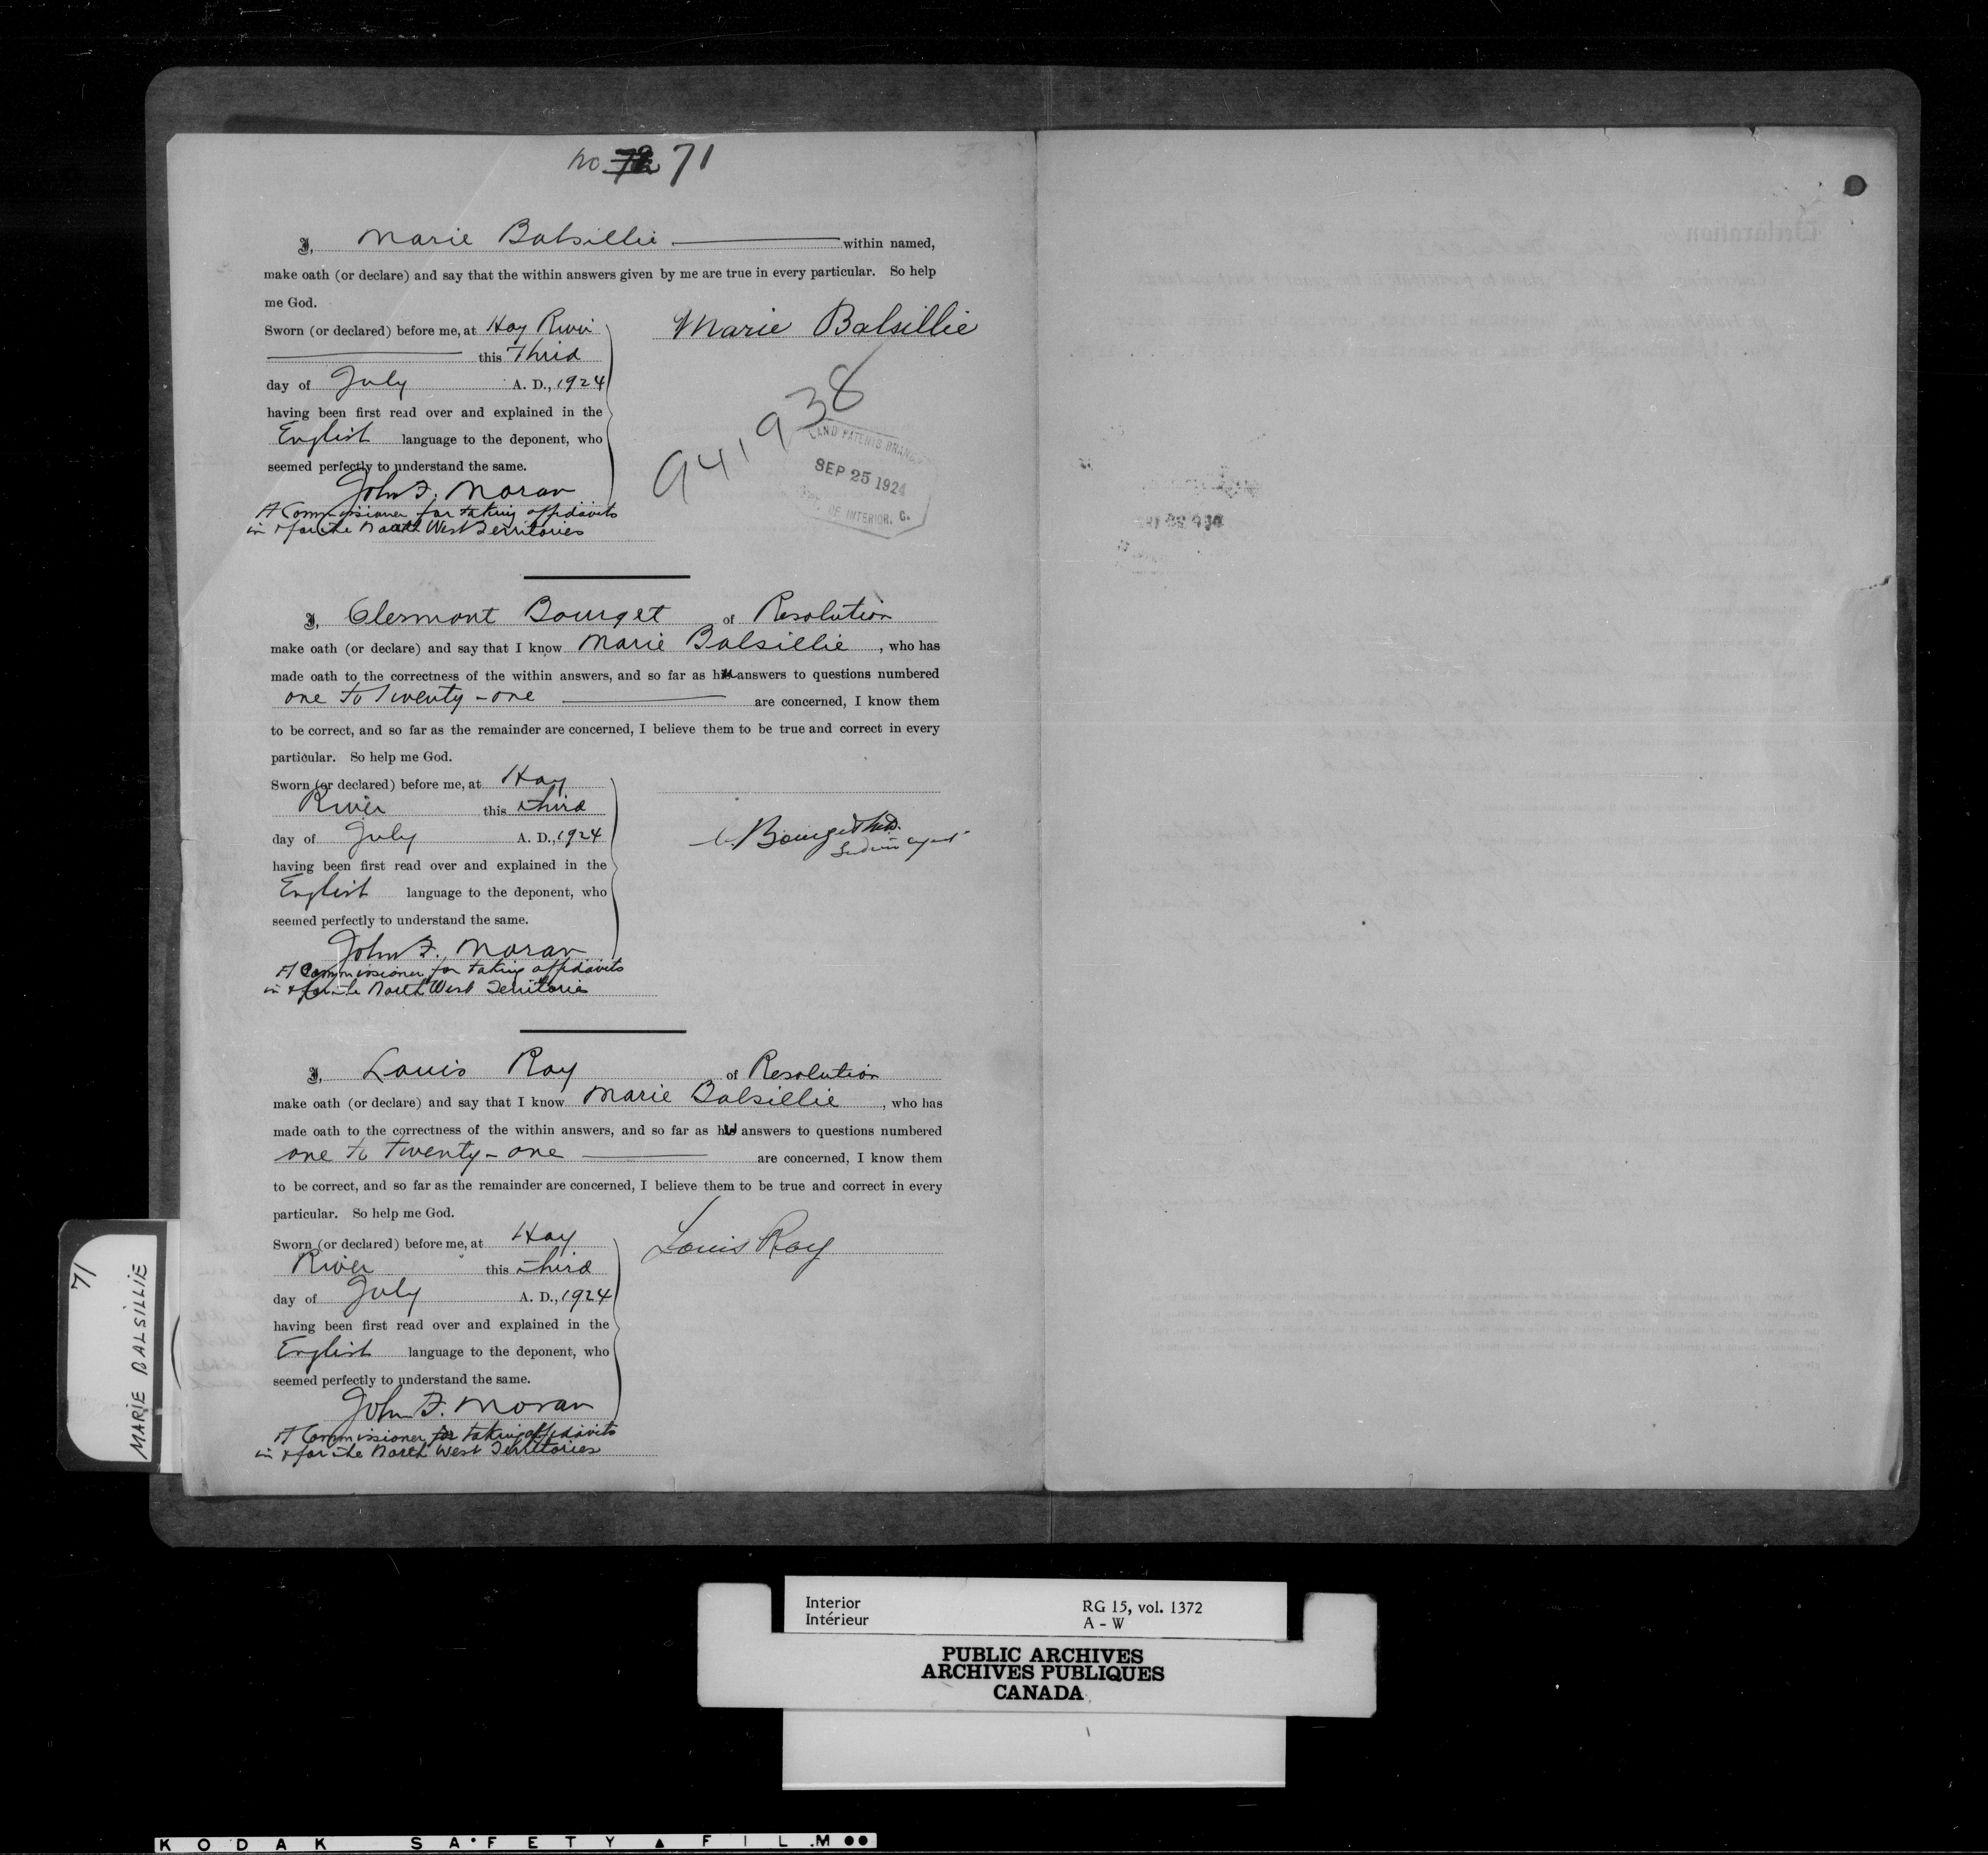 no 71
I, Marie Balsillie within named,
make oath (or declare) and say that the within answers given by me are true in every particular. So help
me God.
Sworn (or declared) before me, at Hay River
this Thrid
day of July A. D., 1924
having been first read over and explained in the
English language to the deponent, who
seemed perfectly to understand the same.
John F. Moran
A Commissioner for taking affidavits
in & for the North West Territories
Marie Balsillie
941938
LAND PATENTS BRANCH
SEP 25 1924
DEPT. OF INTERIOR, C.
I, Clermont Bourget of Resolution
make oath (or declare) and say that I know Marie Balsillie, who has
made oath to the correctness of the within answers, and so far as her answers to questions numbered
one to Twenty-one are concerned, I know them
to be correct, and so far as the remainder are concerned, I believe them to be true and correct in every
particular. So help me God.
Sworn (or declared) before me, at Hay
River this third
day of July A. D., 1924
having been first read over and explained in the
English language to the deponent, who
seemed perfectly to understand the same.
John F. Moran
A Commissioner for taking affidavits
in & for the North West Territories
C. Bourget M.D.
Indian Agent
I, Louis Roy of Resolution
make oath (or declare) and say that I know Marie Balsillie, who has
made oath to the correctness of the within answers, and so far as her answers to questions numbered
one to Twenty-one are concerned, I know them
to be correct, and so far as the remainder are concerned, I believe them to be true and correct in every
particular. So help me God.
Sworn (or declared) before me, at Hay
River this third
day of July A. D., 1924
having been first read over and explained in the
English language to the deponent, who
seemed perfectly to understand the same.
John F. Moran
A Commissioner for taking affidavits
in & for the North West Territories
Louis Roy
71
MARIE BALSILLIE
Declaration
Interior RG 15, vol. 1372
Intérieur A - W
PUBLIC ARCHIVES
ARCHIVES PUBLIQUES
CANADA
KODAK SAFETY FILM